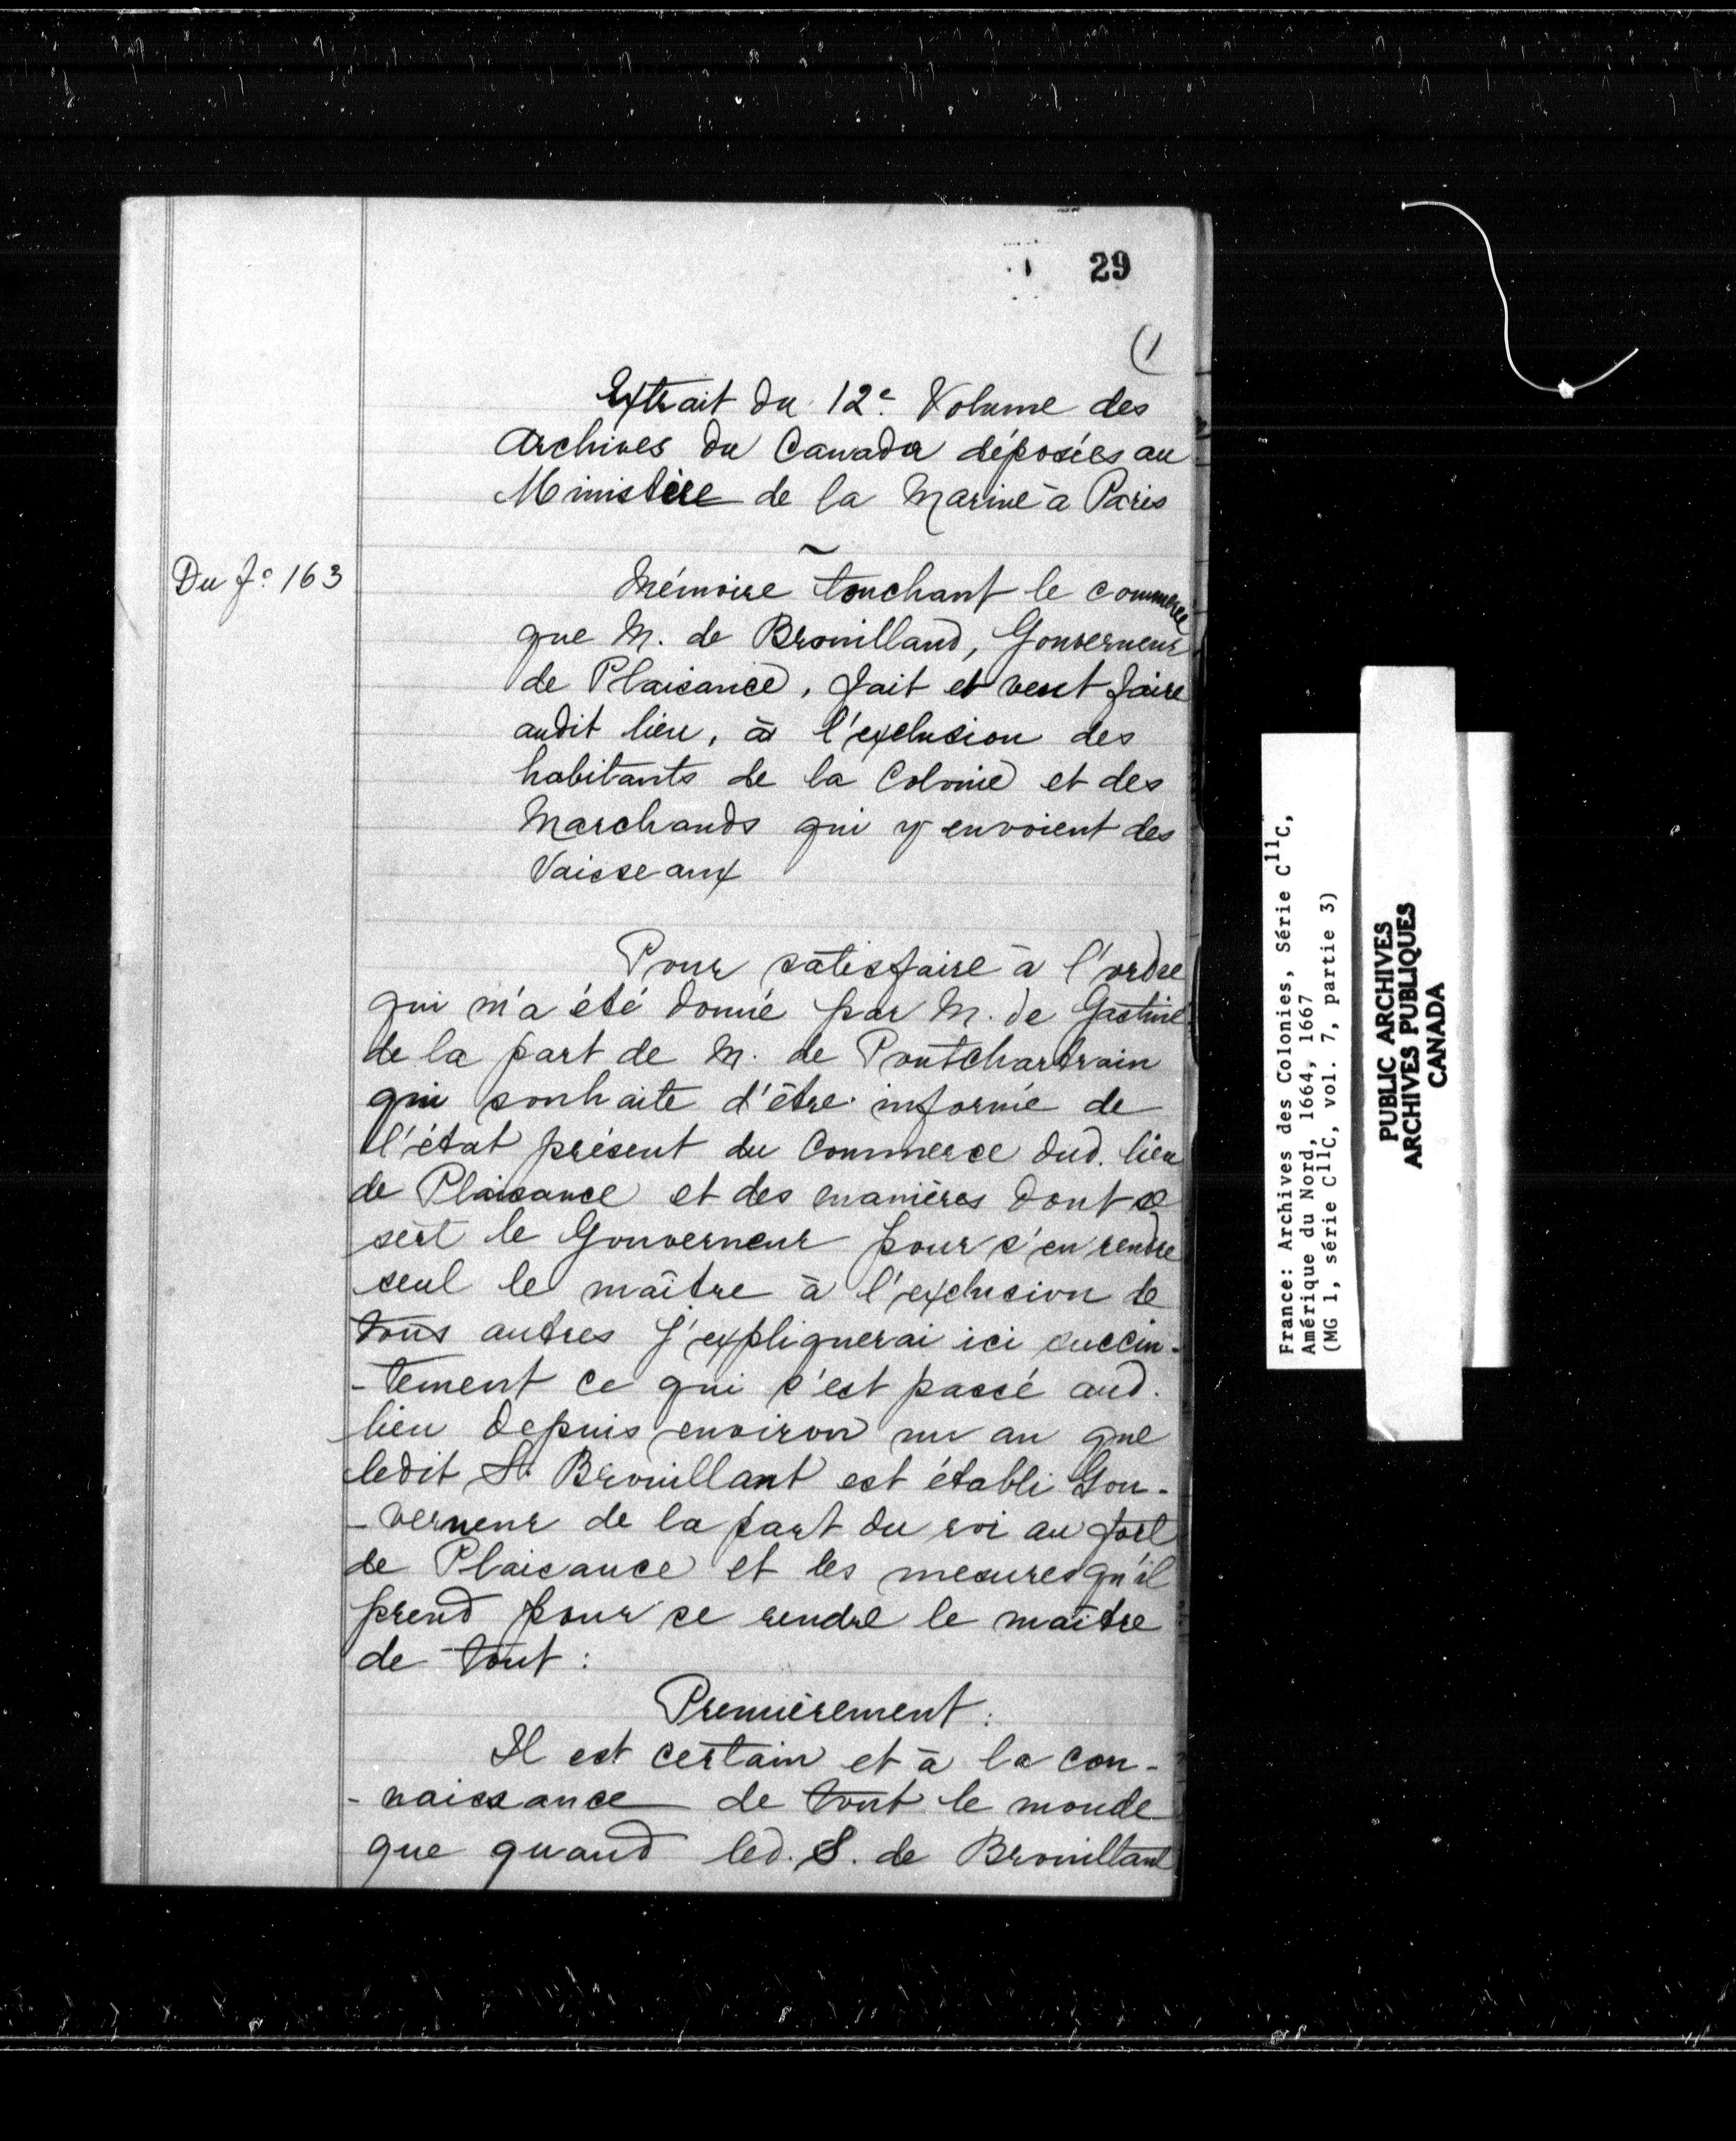 29
(1
Extrait du 12e Volume des
Archives du Canada déposées au
Ministère de la Marine à Paris
Du fo. 163
Mémoire touchant le commerce
que M. de Brouilland, Gouverneur
de Plaisance, fait et veut faire
audit lieu, à l'exclusion des
habitants de la Colonie et des
Marchands qui y envoient des
Vaisseaux
Pour satisfaire à l'ordre
qui m'a été donné par M. de Gastine
de la part de M. de Pontchartrain
qui souhaite d'être informé de
l'état présent du Commerce dud. lieu
de Plaisance et des manières dont se
sert le Gouverneur pour s'en rendre
seul le maître à l'exclusion de
tous autres j'expliquerai ici succin-
-tement ce qui s'est passé aud.
lieu depuis environ un an que
ledit S. Brouillant est établi Gou-
-verneur de la part du roi au fort
de Plaisance et les mesures qu'il
prend pour se rendre le maître
de tout :
Premièrement :
Il est certain et à la con-
-naissance de tout le monde
que quand led. S. de Brouillant
France: Archives des Colonies, Série C11C,
Amérique du Nord, 1664, 1667
(MG 1, série C11C, vol. 7, partie 3)
PUBLIC ARCHIVES
ARCHIVES PUBLIQUES
CANADA